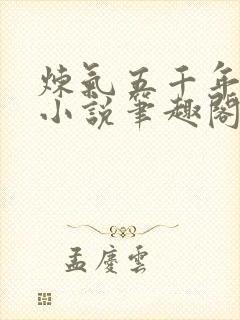 炼氣五千年
小説筆趣閣
孟慶雲